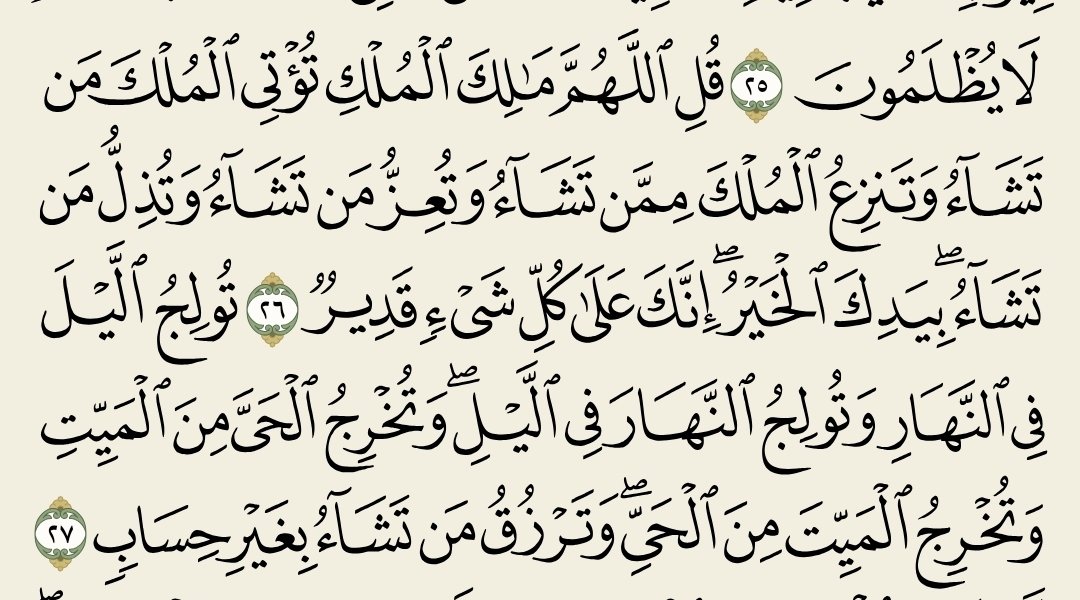 لَا يُظْلَمُونَ ٢٥ قُلِ ٱللَّهُمَّ مَـٰلِكَ ٱلْمُلْكِ تُؤْتِى ٱلْمُلْكَ مَن
تَشَآءُ وَتَنزِعُ ٱلْمُلْكَ مِمَّن تَشَآءُ وَتُعِزُّ مَن تَشَآءُ وَتُذِلُّ مَن
تَشَآءُ ۖ بِيَدِكَ ٱلْخَيْرُ ۖ إِنَّكَ عَلَىٰ كُلِّ شَىْءٍ قَدِيرٌ ٢٦ تُولِجُ ٱلَّيْلَ
فِى ٱلنَّهَارِ وَتُولِجُ ٱلنَّهَارَ فِى ٱلَّيْلِ ۖ وَتُخْرِجُ ٱلْحَىَّ مِنَ ٱلْمَيِّتِ
وَتُخْرِجُ ٱلْمَيِّتَ مِنَ ٱلْحَىِّ ۖ وَتَرْزُقُ مَن تَشَآءُ بِغَيْرِ حِسَابٍ ٢٧